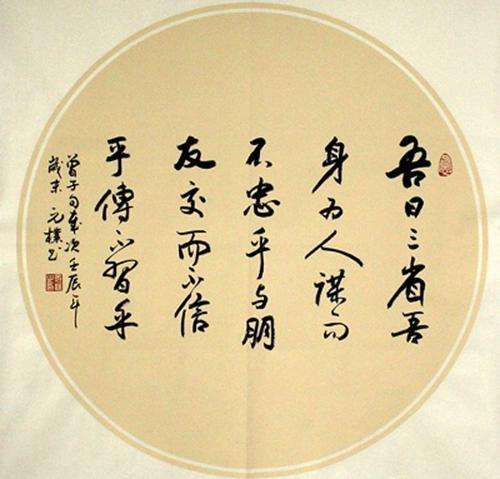 吾日三省吾
身为人谋而
不忠乎与朋
友交而不信
乎傳不習乎
曾子句歲次壬辰年
歲末元樸书